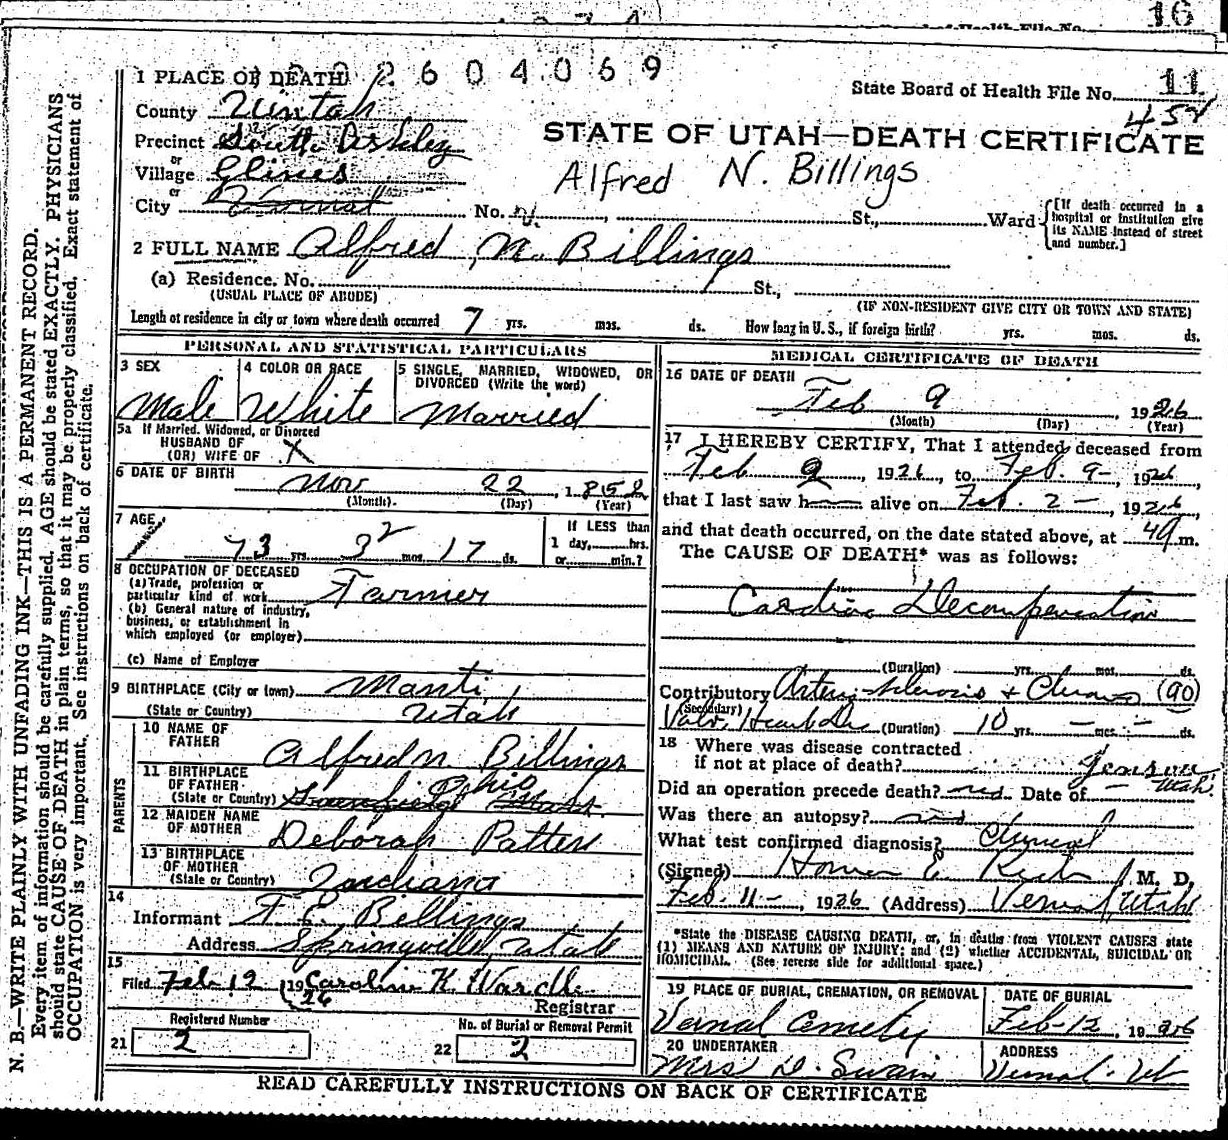 16
of Health File No.
1 PLACE OF DEATH
2604069
State Board of Health File No. 11
458
County Uintah
Precinct South Ashley
or
Village Glines
or
City Vernal
STATE OF UTAH—DEATH CERTIFICATE
Alfred N. Billings
No. , St., Ward
[If death occurred in a
hospital or institution give
its NAME instead of street
and number.]
2 FULL NAME Alfred N. Billings
(a) Residence. No. St.,
(USUAL PLACE OF ABODE) (IF NON-RESIDENT GIVE CITY OR TOWN AND STATE)
Length of residence in city or town where death occurred 7 yrs. mos. ds. How long in U. S., if foreign birth? yrs. mos. ds.
N. B.—WRITE PLAINLY WITH UNFADING INK—THIS IS A PERMANENT RECORD.
Every item of information should be carefully supplied. AGE should be stated EXACTLY. PHYSICIANS
should state CAUSE OF DEATH in plain terms, so that it may be properly classified. Exact statement of
OCCUPATION is very important. See instructions on back of certificate.
PERSONAL AND STATISTICAL PARTICULARS
3 SEX 4 COLOR OR RACE 5 SINGLE, MARRIED, WIDOWED, OR
DIVORCED (Write the word)
Male White Married
5a If Married, Widowed, or Divorced
HUSBAND OF
(OR) WIFE OF X
6 DATE OF BIRTH Nov 22, 1852
(Month) (Day) (Year)
7 AGE
If LESS than
1 day, hrs.
or min.?
73 yrs. 3 2 mos. 17 ds.
8 OCCUPATION OF DECEASED
(a) Trade, profession or
particular kind of work Farmer
(b) General nature of industry,
business, or establishment in
which employed (or employer)
(c) Name of Employer
9 BIRTHPLACE (City or town) Manti,
(State or Country) Utah
PARENTS
10 NAME OF
FATHER Alfred N. Billings
11 BIRTHPLACE
OF FATHER Ohio
(State or Country) Greenfield Mass
12 MAIDEN NAME
OF MOTHER Deborah Patten
13 BIRTHPLACE
OF MOTHER
(State or Country) Indiana
14
Informant F. E. Billings
Address Springville, Utah
15
Filed Feb 12 1926 Caroline K. Wardle
Registrar
Registered Number No. of Burial or Removal Permit
21 2 22 2
MEDICAL CERTIFICATE OF DEATH
16 DATE OF DEATH
Feb 9, 1926
(Month) (Day) (Year)
17 I HEREBY CERTIFY, That I attended deceased from
Feb 2, 1926, to Feb. 9-, 1926
that I last saw h alive on Feb. 2 -, 1926
and that death occurred, on the date stated above, at 4a m.
The CAUSE OF DEATH* was as follows:
Cardiac Decompensation
(Duration) yrs. mos. ds.
Contributory Arterio-sclerosis + Chronic (90)
(Secondary)
Valv. Heart Dis (Duration) 10 yrs. - mos. - ds.
18 Where was disease contracted
if not at place of death? Jensen Utah
Did an operation precede death? no. Date of -
Was there an autopsy? no
What test confirmed diagnosis? Clinical
(Signed) Homer E. Rich, M. D.
Feb. 11 -, 1926 (Address) Vernal, Utah
*State the DISEASE CAUSING DEATH, or, in deaths from VIOLENT CAUSES state
(1) MEANS AND NATURE OF INJURY; and (2) whether ACCIDENTAL, SUICIDAL OR
HOMICIDAL. (See reverse side for additional space.)
19 PLACE OF BURIAL, CREMATION, OR REMOVAL DATE OF BURIAL
Vernal Cemetery Feb-12, 1926
20 UNDERTAKER ADDRESS
Mrs D. Swain Vernal. Ut
READ CAREFULLY INSTRUCTIONS ON BACK OF CERTIFICATE